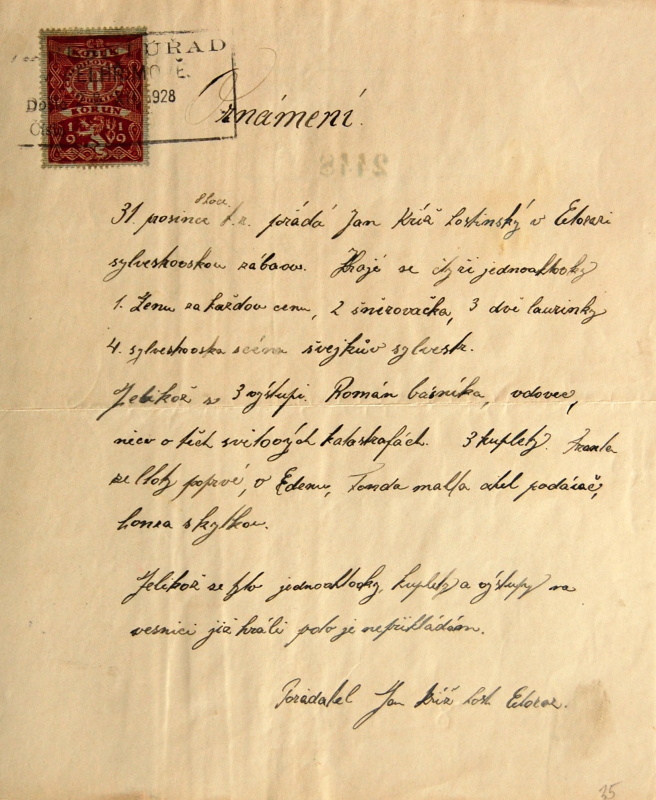 ÚŘAD
1928
KORUN
1919
Oznámení.
2448
31. prosince t.r. pořádá Jan Kříž hostinský v
sylvestrovskou zábavu. Hrají se čtyři jednoaktovky
1. Ženu za každou cenu, 2 šněrovačka, 3 dvě laurinky
4. sylvestrovska scéna švejkův sylvestr.
Jelikož s 3 výstupi. Román básníka, vdovec,
něco o těch světových katastrofách. 3 kuplety. Franta
ze lhoty poprvé v Edenu, Tonda
honza s kytkou.
Jelikož se tyto jednoaktovky, kuplety a výstupy na
vesnici již hráli proto je nepřikládám.
Pořadatel Jan Kříž host.
35